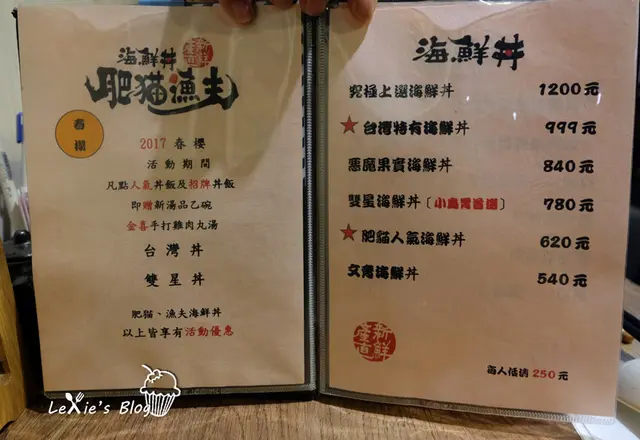 海.鮮丼
新鮮
産直
肥猫漁夫
春櫻
2017 春櫻
活動期間
凡點人氣丼飯及招牌丼飯
即贈新湯品乙碗
金喜手打雞肉丸湯
台灣丼
雙星丼
肥猫、漁夫海鮮丼
以上皆享有活動優惠
海.鮮丼
究極上選海鮮丼 1200元
★台灣特有海鮮丼 999元
惡魔果實海鮮丼 840元
雙星海鮮丼〔小鳥胃首選〕 780元
★肥貓人氣海鮮丼 620元
文青海鮮丼 540元
新鮮
産直
每人低消 250元
LeXie's Blog